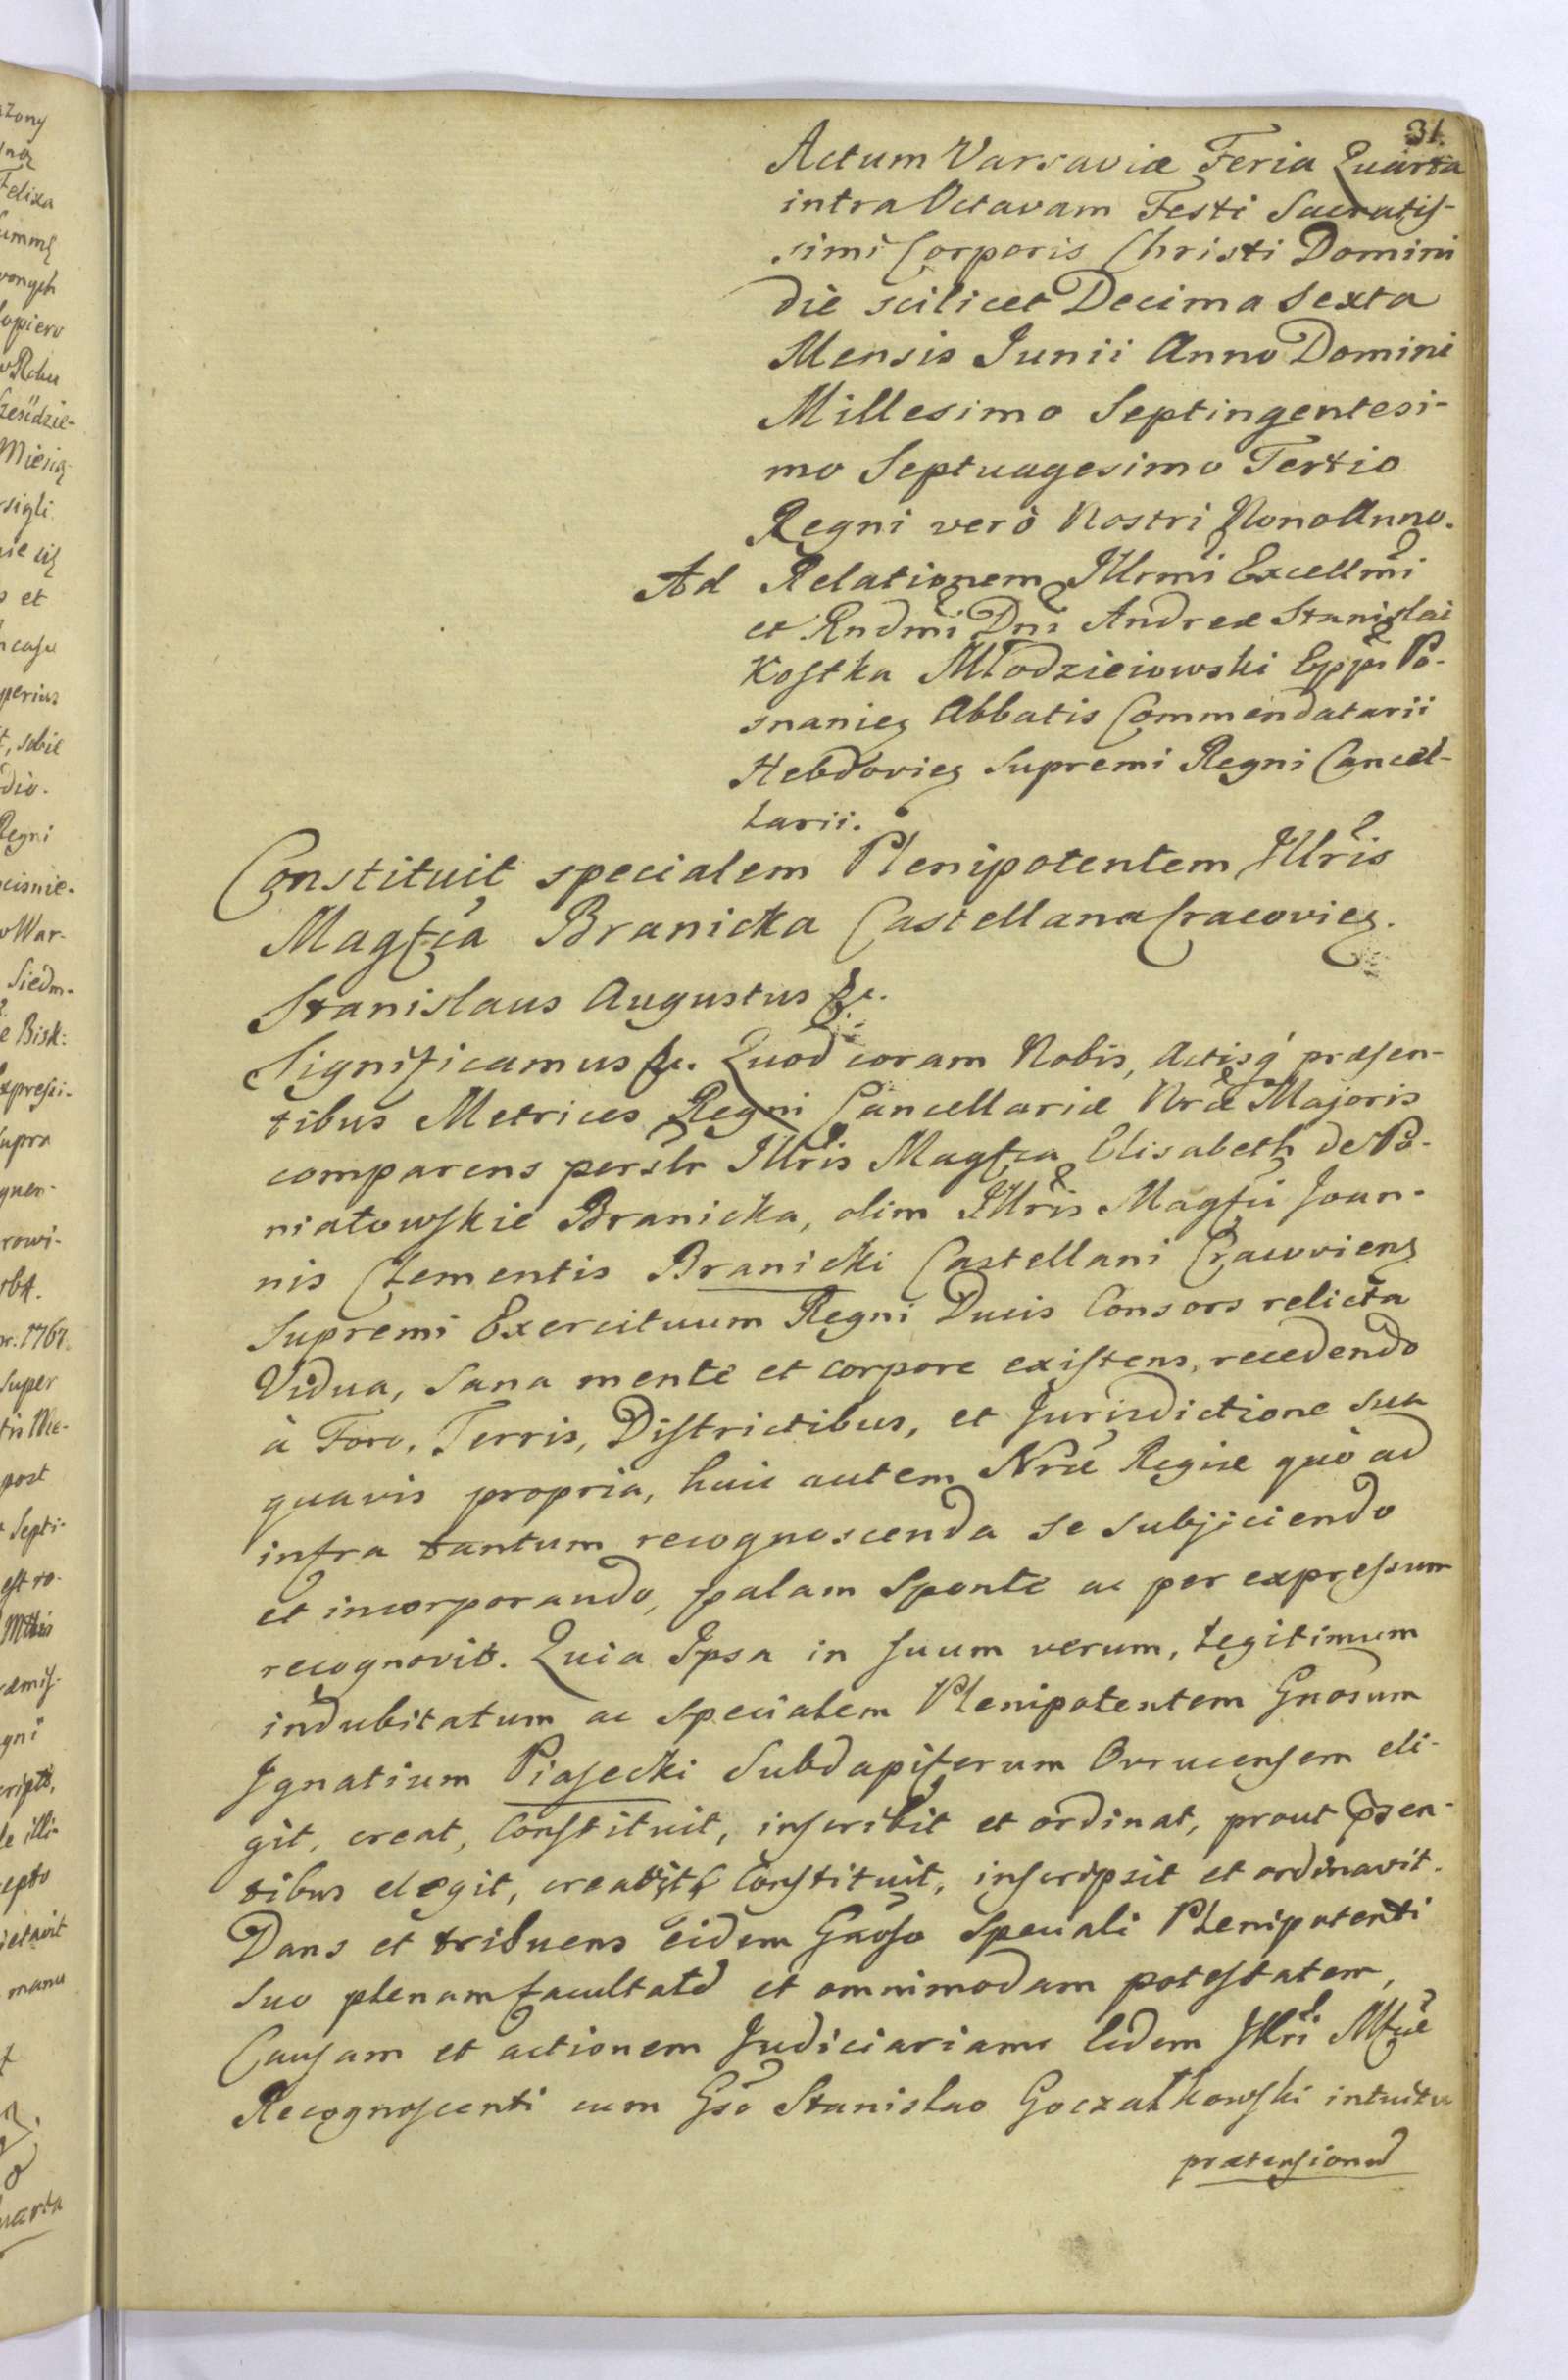 31.
Actum Varsaviæ Feria Quarta
intra Octavam Festi Sacratis-
simi Corporis Christi Domini
die scilicet Decima Sexta
Mensis Junii Anno Domini
Millesimo Septingentesi-
mo Septuagesimo Tertio
Regni verò Nostri Nono Anno.
Ad Relationem Illrmi Excellmi
et Rndmi Dni Andreæ Stanislai
Kostka Młodzieiowski Eppi Po-
snanien Abbatis Commendatarii
Hebdovien Supremi Regni Cancel-
larii.
Constituit specialem Plenipotentem Illris
Magfca Branicka Castellana Cracovien.
Stanislaus Augustus &c.
Significamus &c. Quod coram Nobis, Actisq præsen-
tibus Metrices Regni Cancellariæ Nræ Majoris
comparens persltr Illris Magfca Elisabeth de Po-
niatowskie Branicka, olim Illris Magfci Joan-
nis Clementis Branicki Castellani Cracovien
Supremi Exercituum Regni Ducis Consors relicta
Vidua, Sana mente et corpore existens, recedendo
à Foro, Terris, Districtibus, et Jurisdictione sua
quavis propria, huic autem Nræ Regiæ quò ad
infra tantum recognoscenda se subjiciendo
et incorporando, palam Sponte ac per expressum
recognovit. Quia Ipsa in suum verum, legitimum
indubitatum ac Specialem Plenipotentem Gnosum
Ignatium Piasecki Subdapiferum Ovrucensem eli-
git, creat, Constituit, inscribit et ordinat, prout psen-
tibus elegit, creavit, Constituit, inscripsit et ordinavit.
Dans et tribuens eidem Gnoso Speciali Plenipotenti
Suo plenam facultatem et omnimodam potestatem,
Causam et actionem Judiciariam Eidem Illri Mfcæ
Recognoscenti cum Gso Stanislao Goczałkowski intuitu
prætensionum